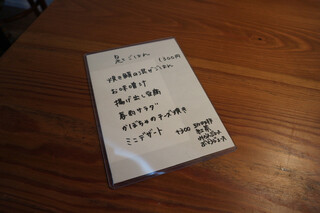 昼ごはん 1300円
焼き鯖の混ぜごはん
お味噌汁
揚げ出し豆腐
春雨サラダ
かぼちゃのチーズ焼き
ミニデザート +300
紅茶